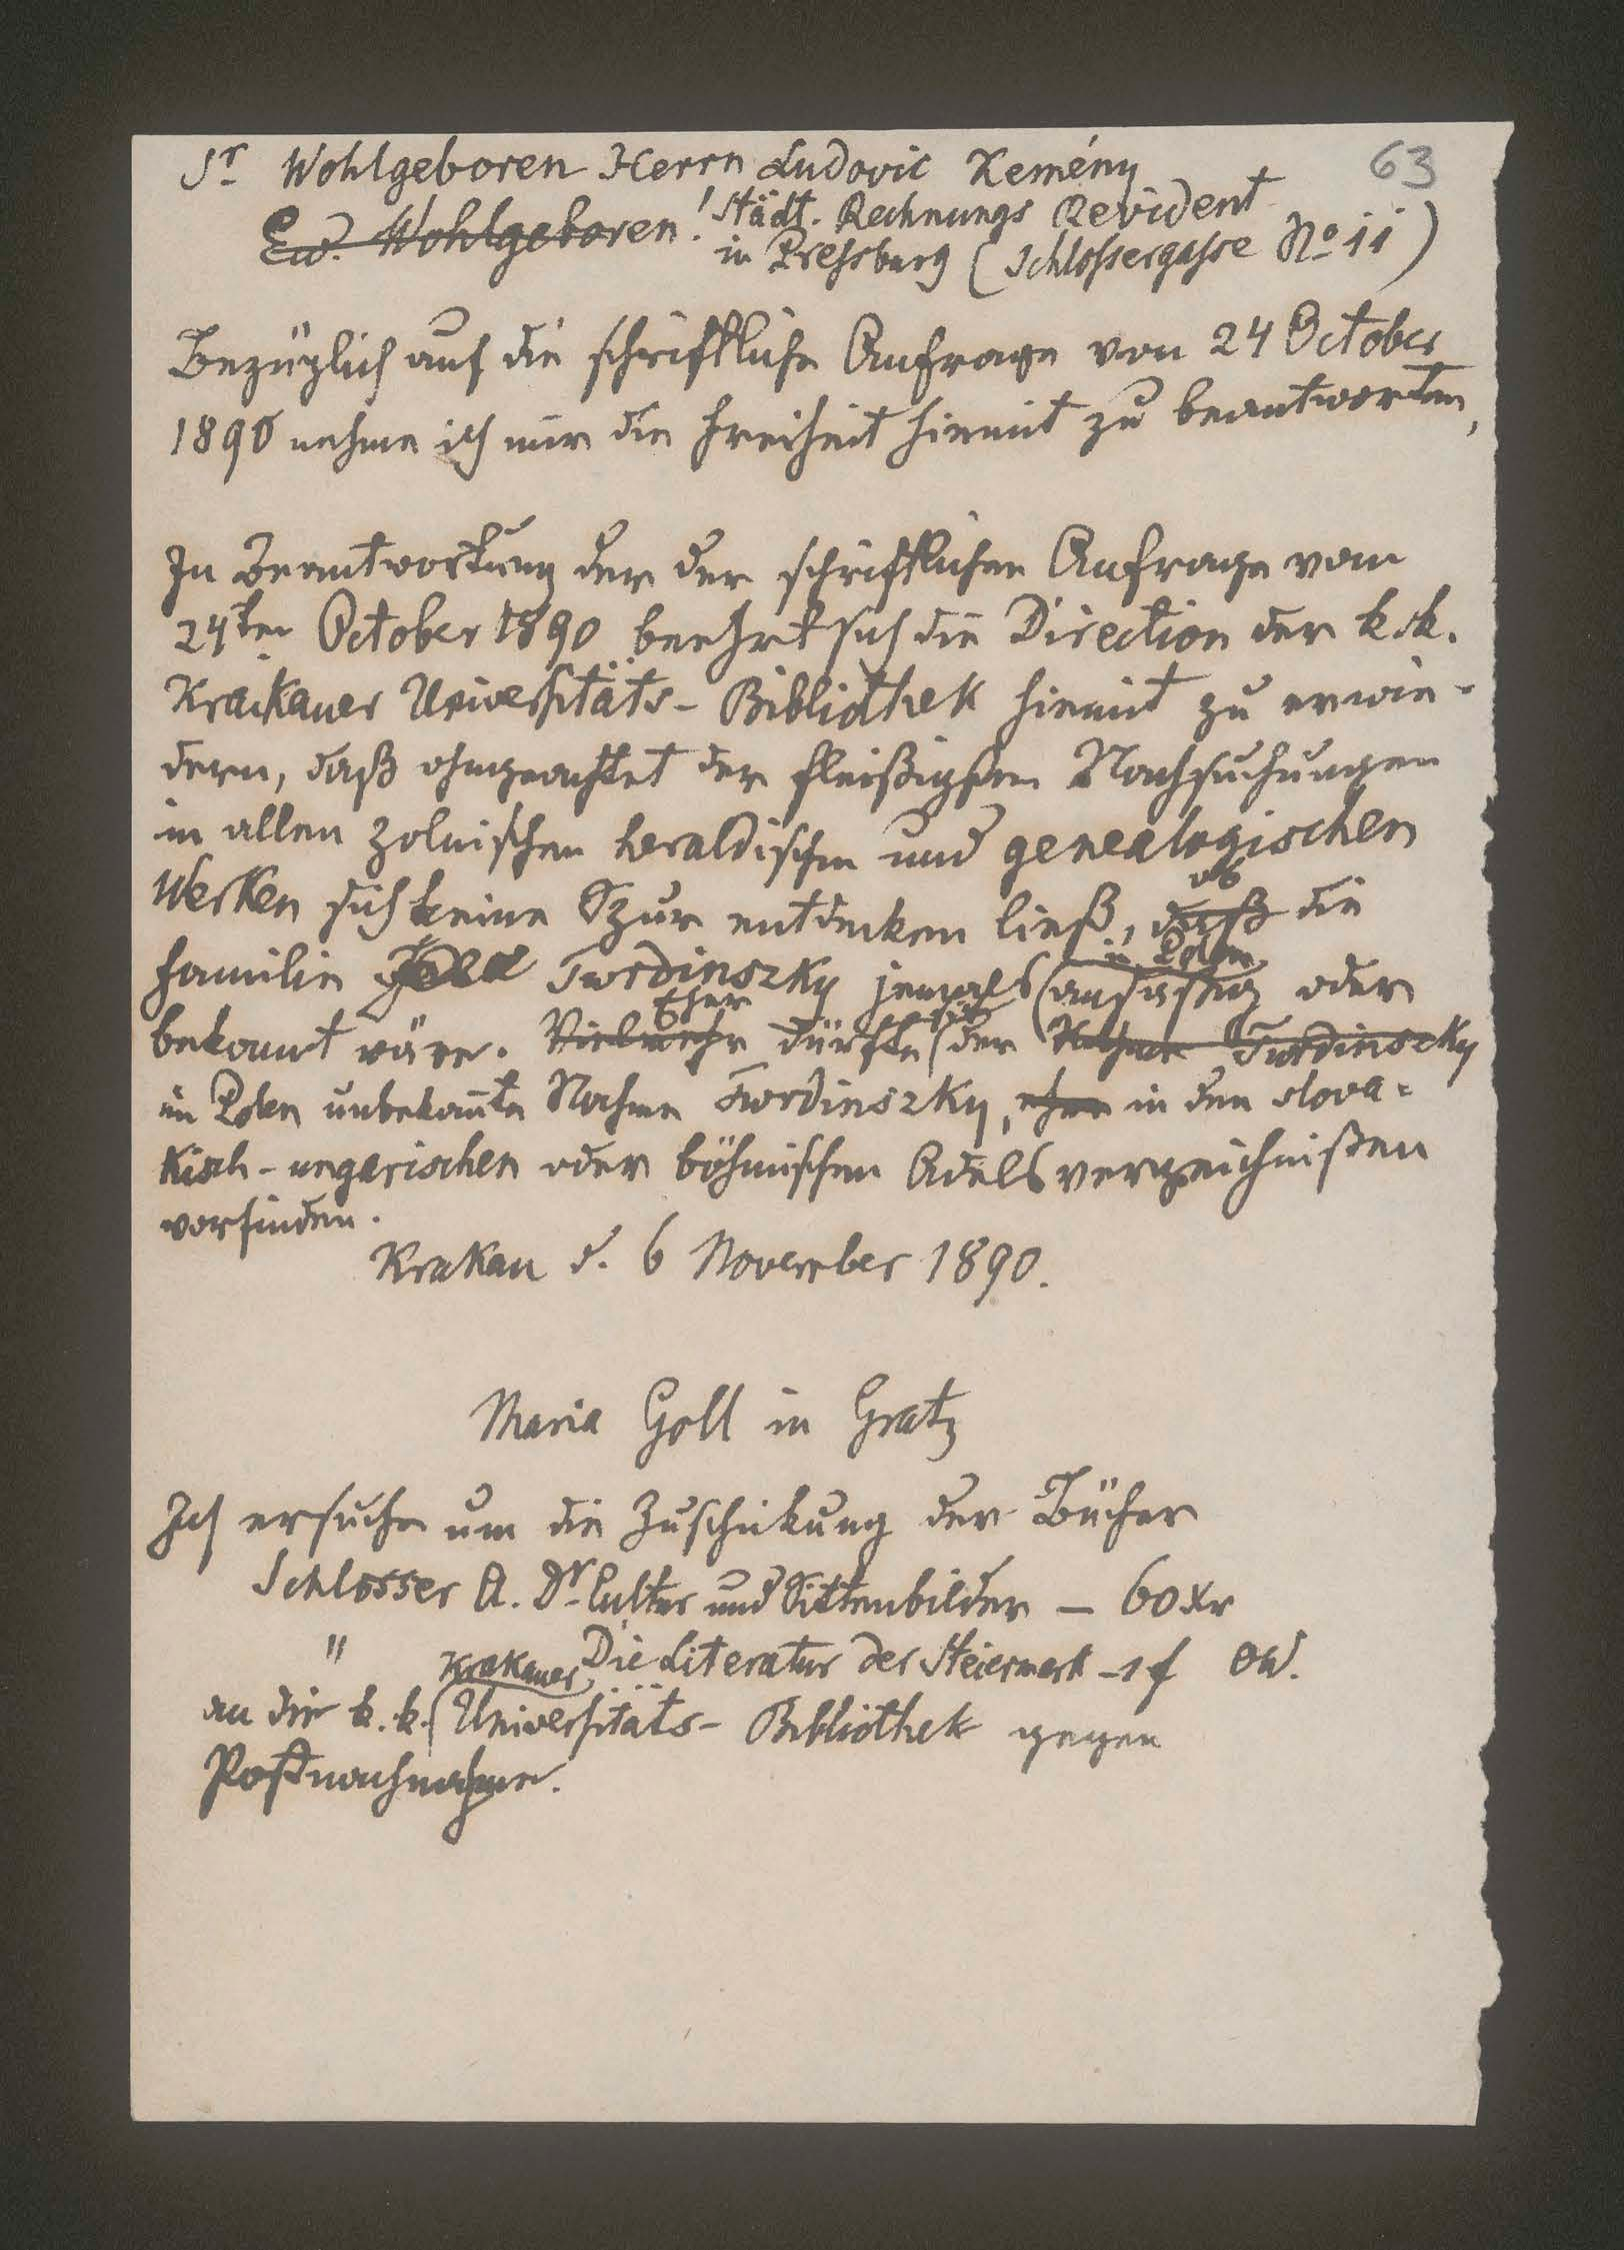 Sr Wohlgeboren Herrn Ludovic Kemény
63
Ew. Wohlgeboren! Städt. Rechnungs Revident
in Pressburg (Schlossergasse No 11)
Bezüglich auf die schriftliche Anfrage von 24 October
1890 nehme ich mir die Freiheit hiemit zu beantworten,
In Beantwortung der der schriftlichen Anfrage vom
24ten October 1890 beehrt sich die Direction der k.k.
Krakauer Universitäts-Bibliothek hiemit zu erwie-
dern, daß ohngeachtet der fleißigsten Nachsuchungen
in allen polnischen heraldischen und genealogischen
ob
Werken sich keine Spur entdecken ließ, daß die
in Polen
Familie Twrdinszky jemals ansässig oder
Eher sich
bekannt wäre. Vielmehr dürfte der Nahme Twrdinszky
in Polen unbekannte Nahme Twrdinszky, eher in den slova-
kisch-ungarischen oder böhmischen Adelsverzeichnißen
vorfinden.
Krakau d. 6 November 1890.
Maria Goll in Gratz
Ich ersuche um die Zuschickung der Bücher
Schlosser A. Dr Cultur und Sittenbilder — 60 xr
" Die Literatur der Steiermark - 1 f ÖW.
Krakauer
an die k.k. Universitäts-Bibliothek gegen
Postnachnahme.